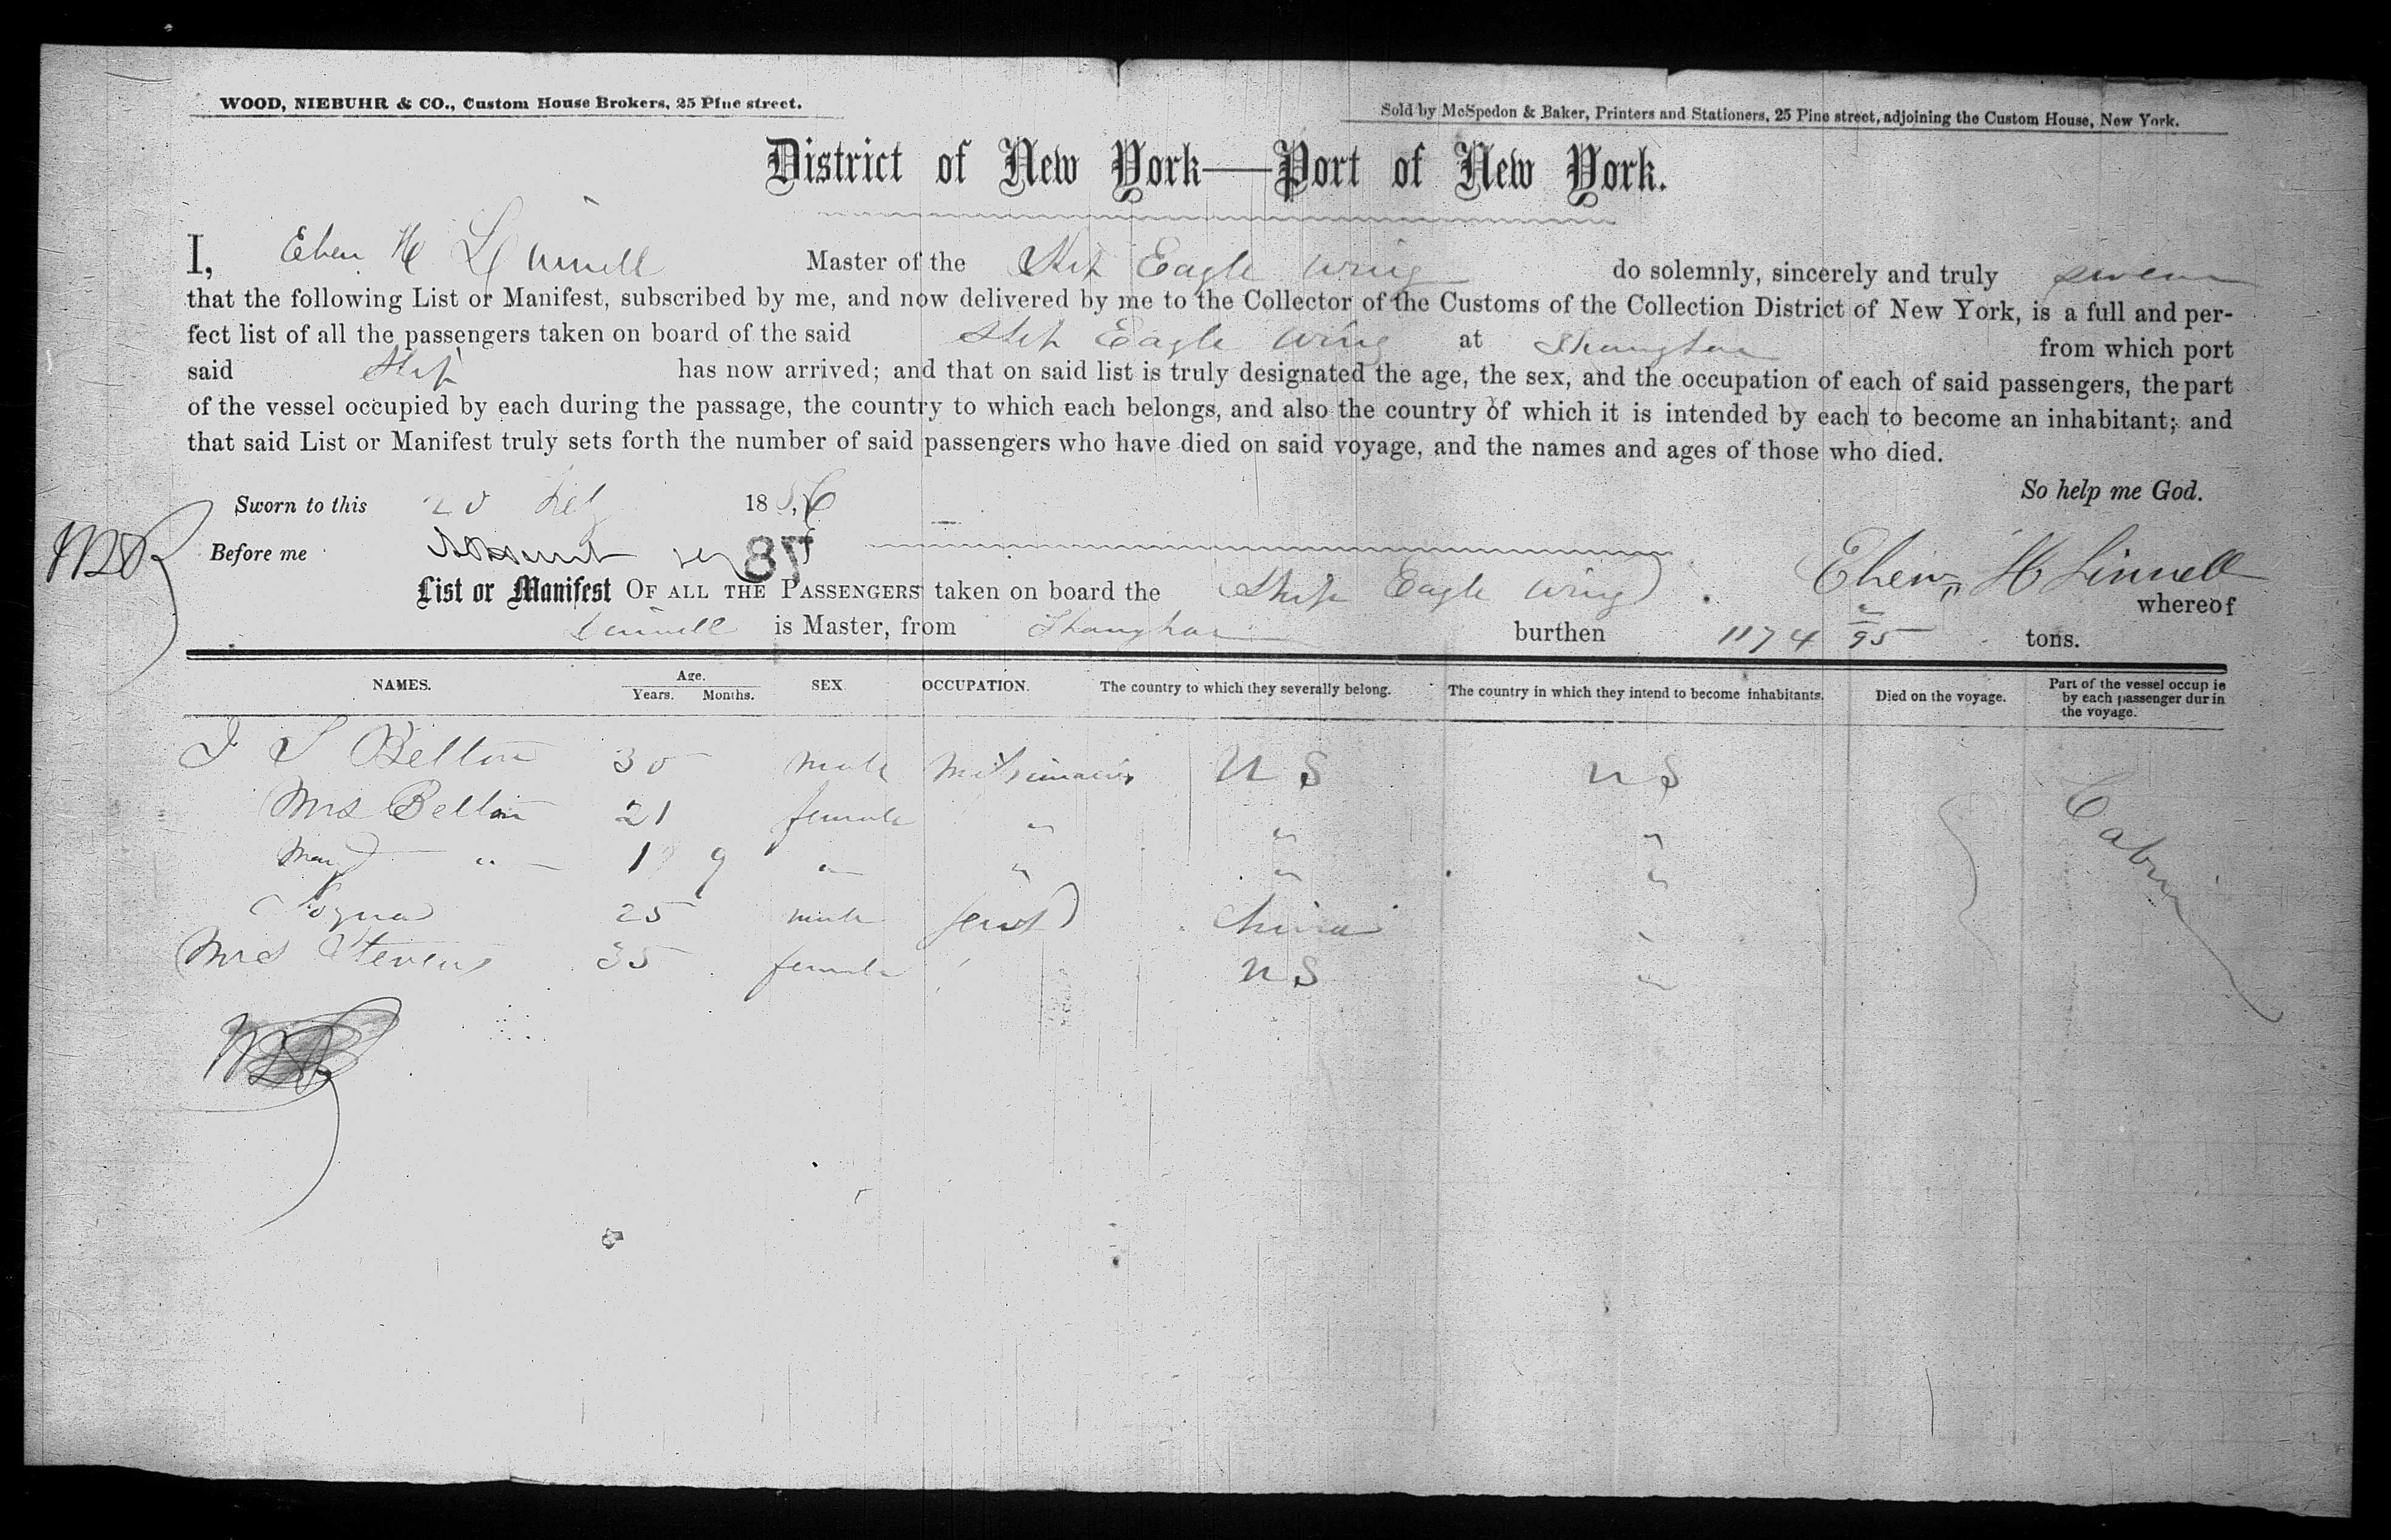 WOOD, NIEBUHR & CO., Custom House Brokers, 25 Pine street.
Sold by McSpedon & Baker, Printers and Stationers, 25 Pine street, adjoining the Custom House, New York.
District of New York—Port of New York.
I, Eben H Linnell Master of the Ship Eagle Wing do solemnly, sincerely and truly swear
that the following List or Manifest, subscribed by me, and now delivered by me to the Collector of the Customs of the Collection District of New York, is a full and per-
fect list of all the passengers taken on board of the said Ship Eagle Wing at Shanghai from which port
said Ship has now arrived; and that on said list is truly designated the age, the sex, and the occupation of each of said passengers, the part
of the vessel occupied by each during the passage, the country to which each belongs, and also the country of which it is intended by each to become an inhabitant; and
that said List or Manifest truly sets forth the number of said passengers who have died on said voyage, and the names and ages of those who died.
So help me God.
Sworn to this 20 Feb 1856
Before me 87 Eben H Linnell
List or Manifest OF ALL THE PASSENGERS taken on board the Ship Eagle Wing whereof
Linnell is Master, from Shanghai burthen 1174 /95 tons.
NAMES. Age. Years. Months. SEX OCCUPATION. The country to which they severally belong. The country in which they intend to become inhabitants. Died on the voyage. Part of the vessel occup ie by each passenger dur in the voyage.
30 male U S U S Cabin
Mrs 21 female " " "
Mary " 1 9 " " " "
25 male Servt China "
Mrs Stevens 35 female U S "